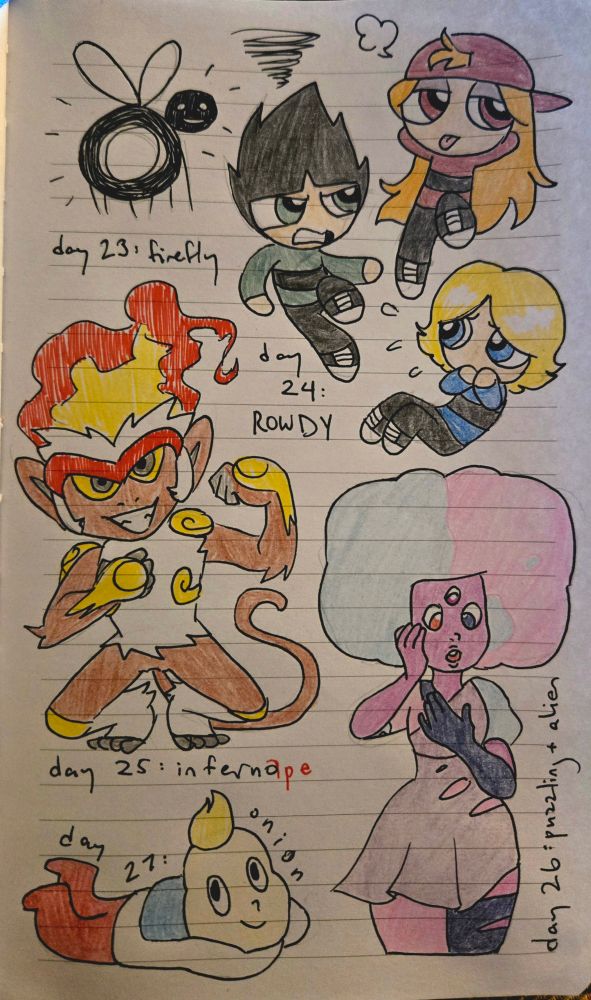 day 23: firefly
day
24:
ROWDY
day 25: infernape
day 26: puzzling + alien
day
27:
onion